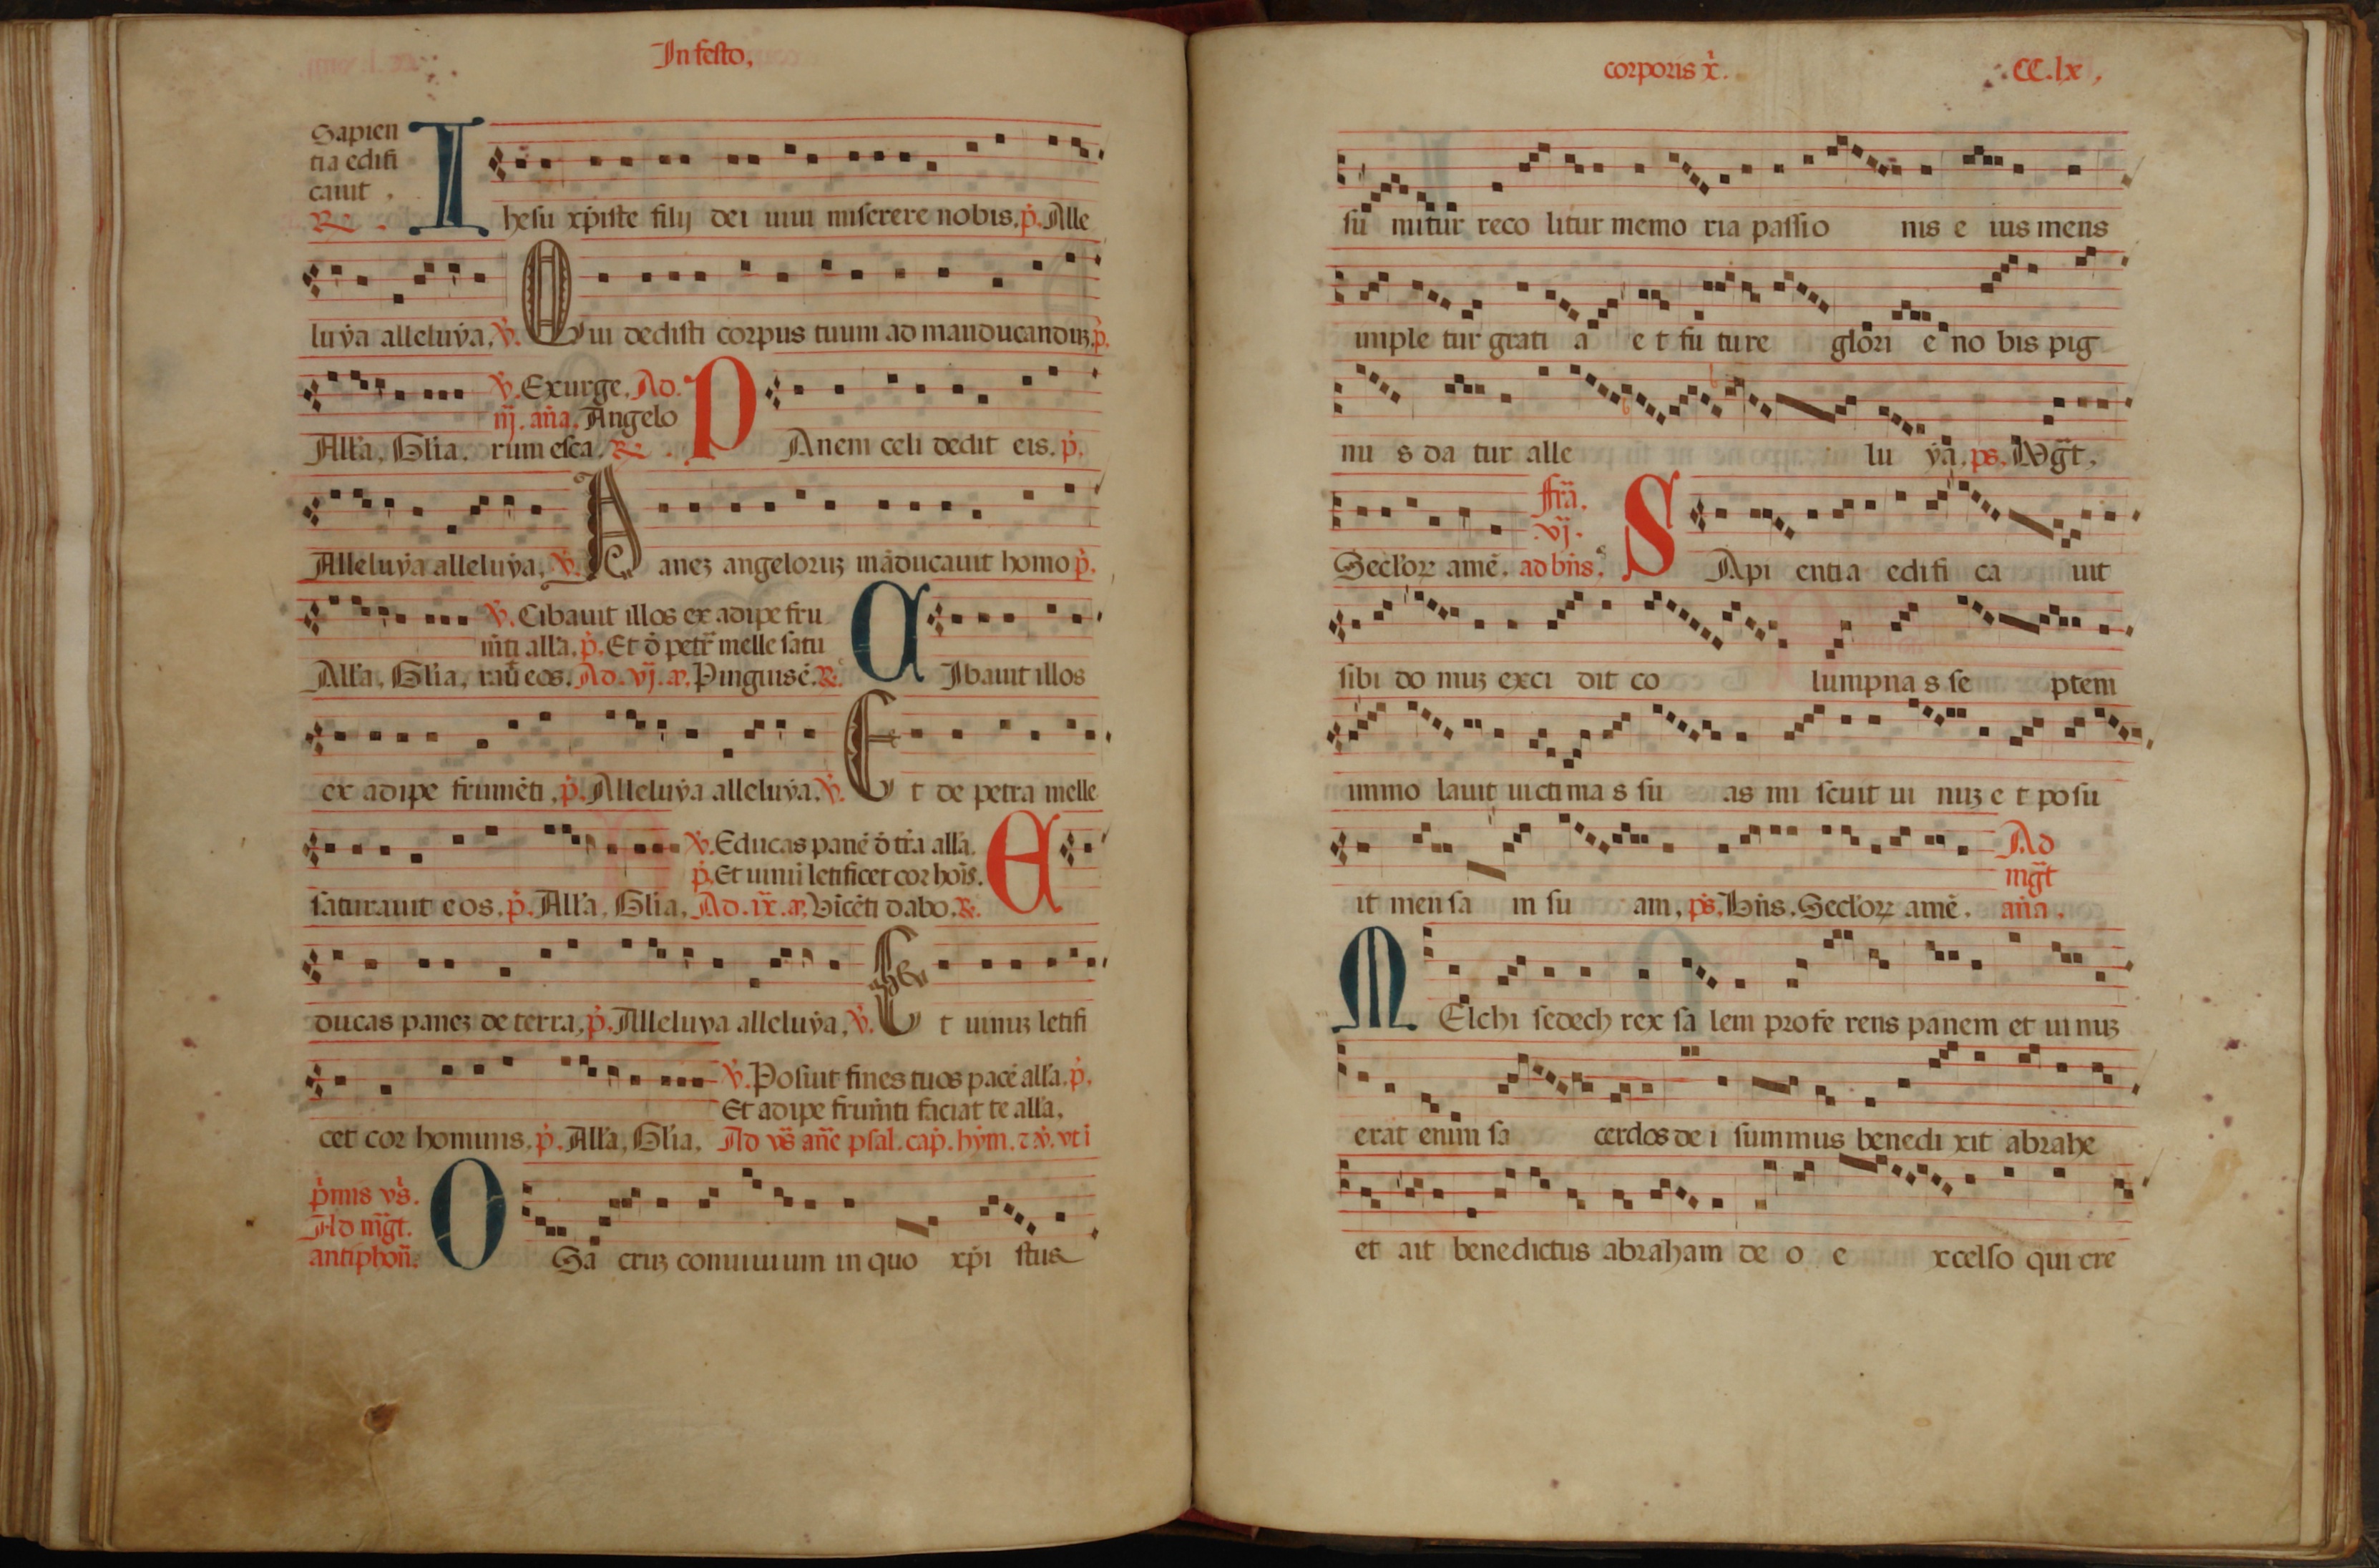 In festo,
Sapien
tia edifi
cauit,
R. Ihesu xp̄iste filij dei uiui miserere nobis. p̄. Alle
luẏa alleluẏa, v̇. Qui dedisti corpus tuum ad manducanduʒ, p̄.
v̇. Exurge. Ad.
iij. an̄a. Angelo
All'a, Gl'ia. rum esca. R. PAnem celi dedit eis. p̄.
Alleluẏa alleluẏa, v̇. Paneʒ angeloruʒ māducauit homo p̄.
v̇. Cibauit illos ex adipe fru
m̄ti all'a. p̄. Et ꝺ̄ petr̄ melle satu
All'a, Gl'ia, rau̅ eos. Ad. vj. a. Pinguis ē. R. CIbauit illos
ex adipe frumēti, p̄. Alleluẏa alleluẏa. v̇. Et de petra melle
v̇. Educas panē ꝺ̄ tr̄a all'a.
p̄. Et uinū letificet cor hoīs.
saturauit eos. p̄. All'a, Gl'ia, Ad. ix. a. Vīcēti dabo. R. E
ducas paneʒ de terra, p̄. Alleluya alleluẏa, v̇. Et uinuʒ letifi
v̇. Posiut fines tuos pacē all'a. p̄.
Et adipe frum̄ti faciat te all'a,
cet cor hominis. p̄. All'a, Gl'ia, Ad vs̄ an̄e psal. cap̄. hẏm. ⁊ v̇. vt i
p̄mis vs̄.
Ad mḡt.
antiphon̄. O Sa cruʒ conuiuium in quo xp̄i stus
corporis x̄.
CC.lx,
su mitur reco litur memo ria passio nis e ius mens
imple tur grati a e t fu ture glori e no bis pig
nu s da tur alle lu ẏa, ps. Mḡt,
fr̄a.
.vj.
Secl'oꝝ amē. ad bn̄s. SApi entia edifi ca uit
sibi do muʒ exci dit co lumpna s se ptem
immo lauit uictima s su as mi scuit ui nuʒ e t posu
Ad
mḡt
it mensa m su am, ps. Bn̄s. Secl'oꝝ amē. an̄a.
MElchi sedech rex sa lem profe rens panem et ui nuʒ
erat enim sa cerdos de i summus benedi xit abrahe
et ait benedictus abraham de o e xcelso qui cre